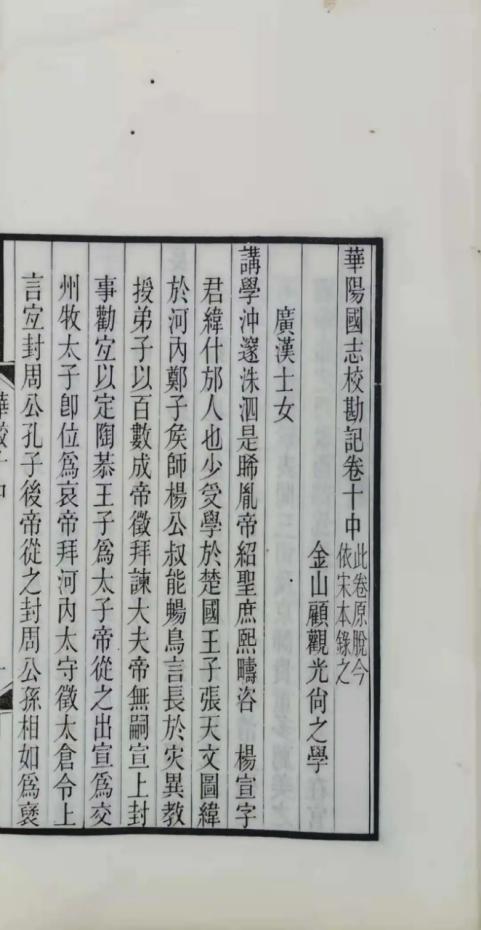 華陽國志校勘記卷十中此卷原脫今依宋本錄之
金山顧觀光尙之學
廣漢士女
講學沖邃洙泗是晞胤帝紹聖庶熙疇咨　楊宣字
君緯什邡人也少受學於楚國王子張天文圖緯
於河內鄭子矦師楊公叔能暢鳥言長於灾異敎
授弟子以百數成帝徵拜諫大夫帝無嗣宣上封
事勸宐以定陶恭王子爲太子帝從之出宣爲交
州牧太子卽位爲哀帝拜河內太守徵太倉令上
言宐封周公孔子後帝從之封周公孫相如爲襃